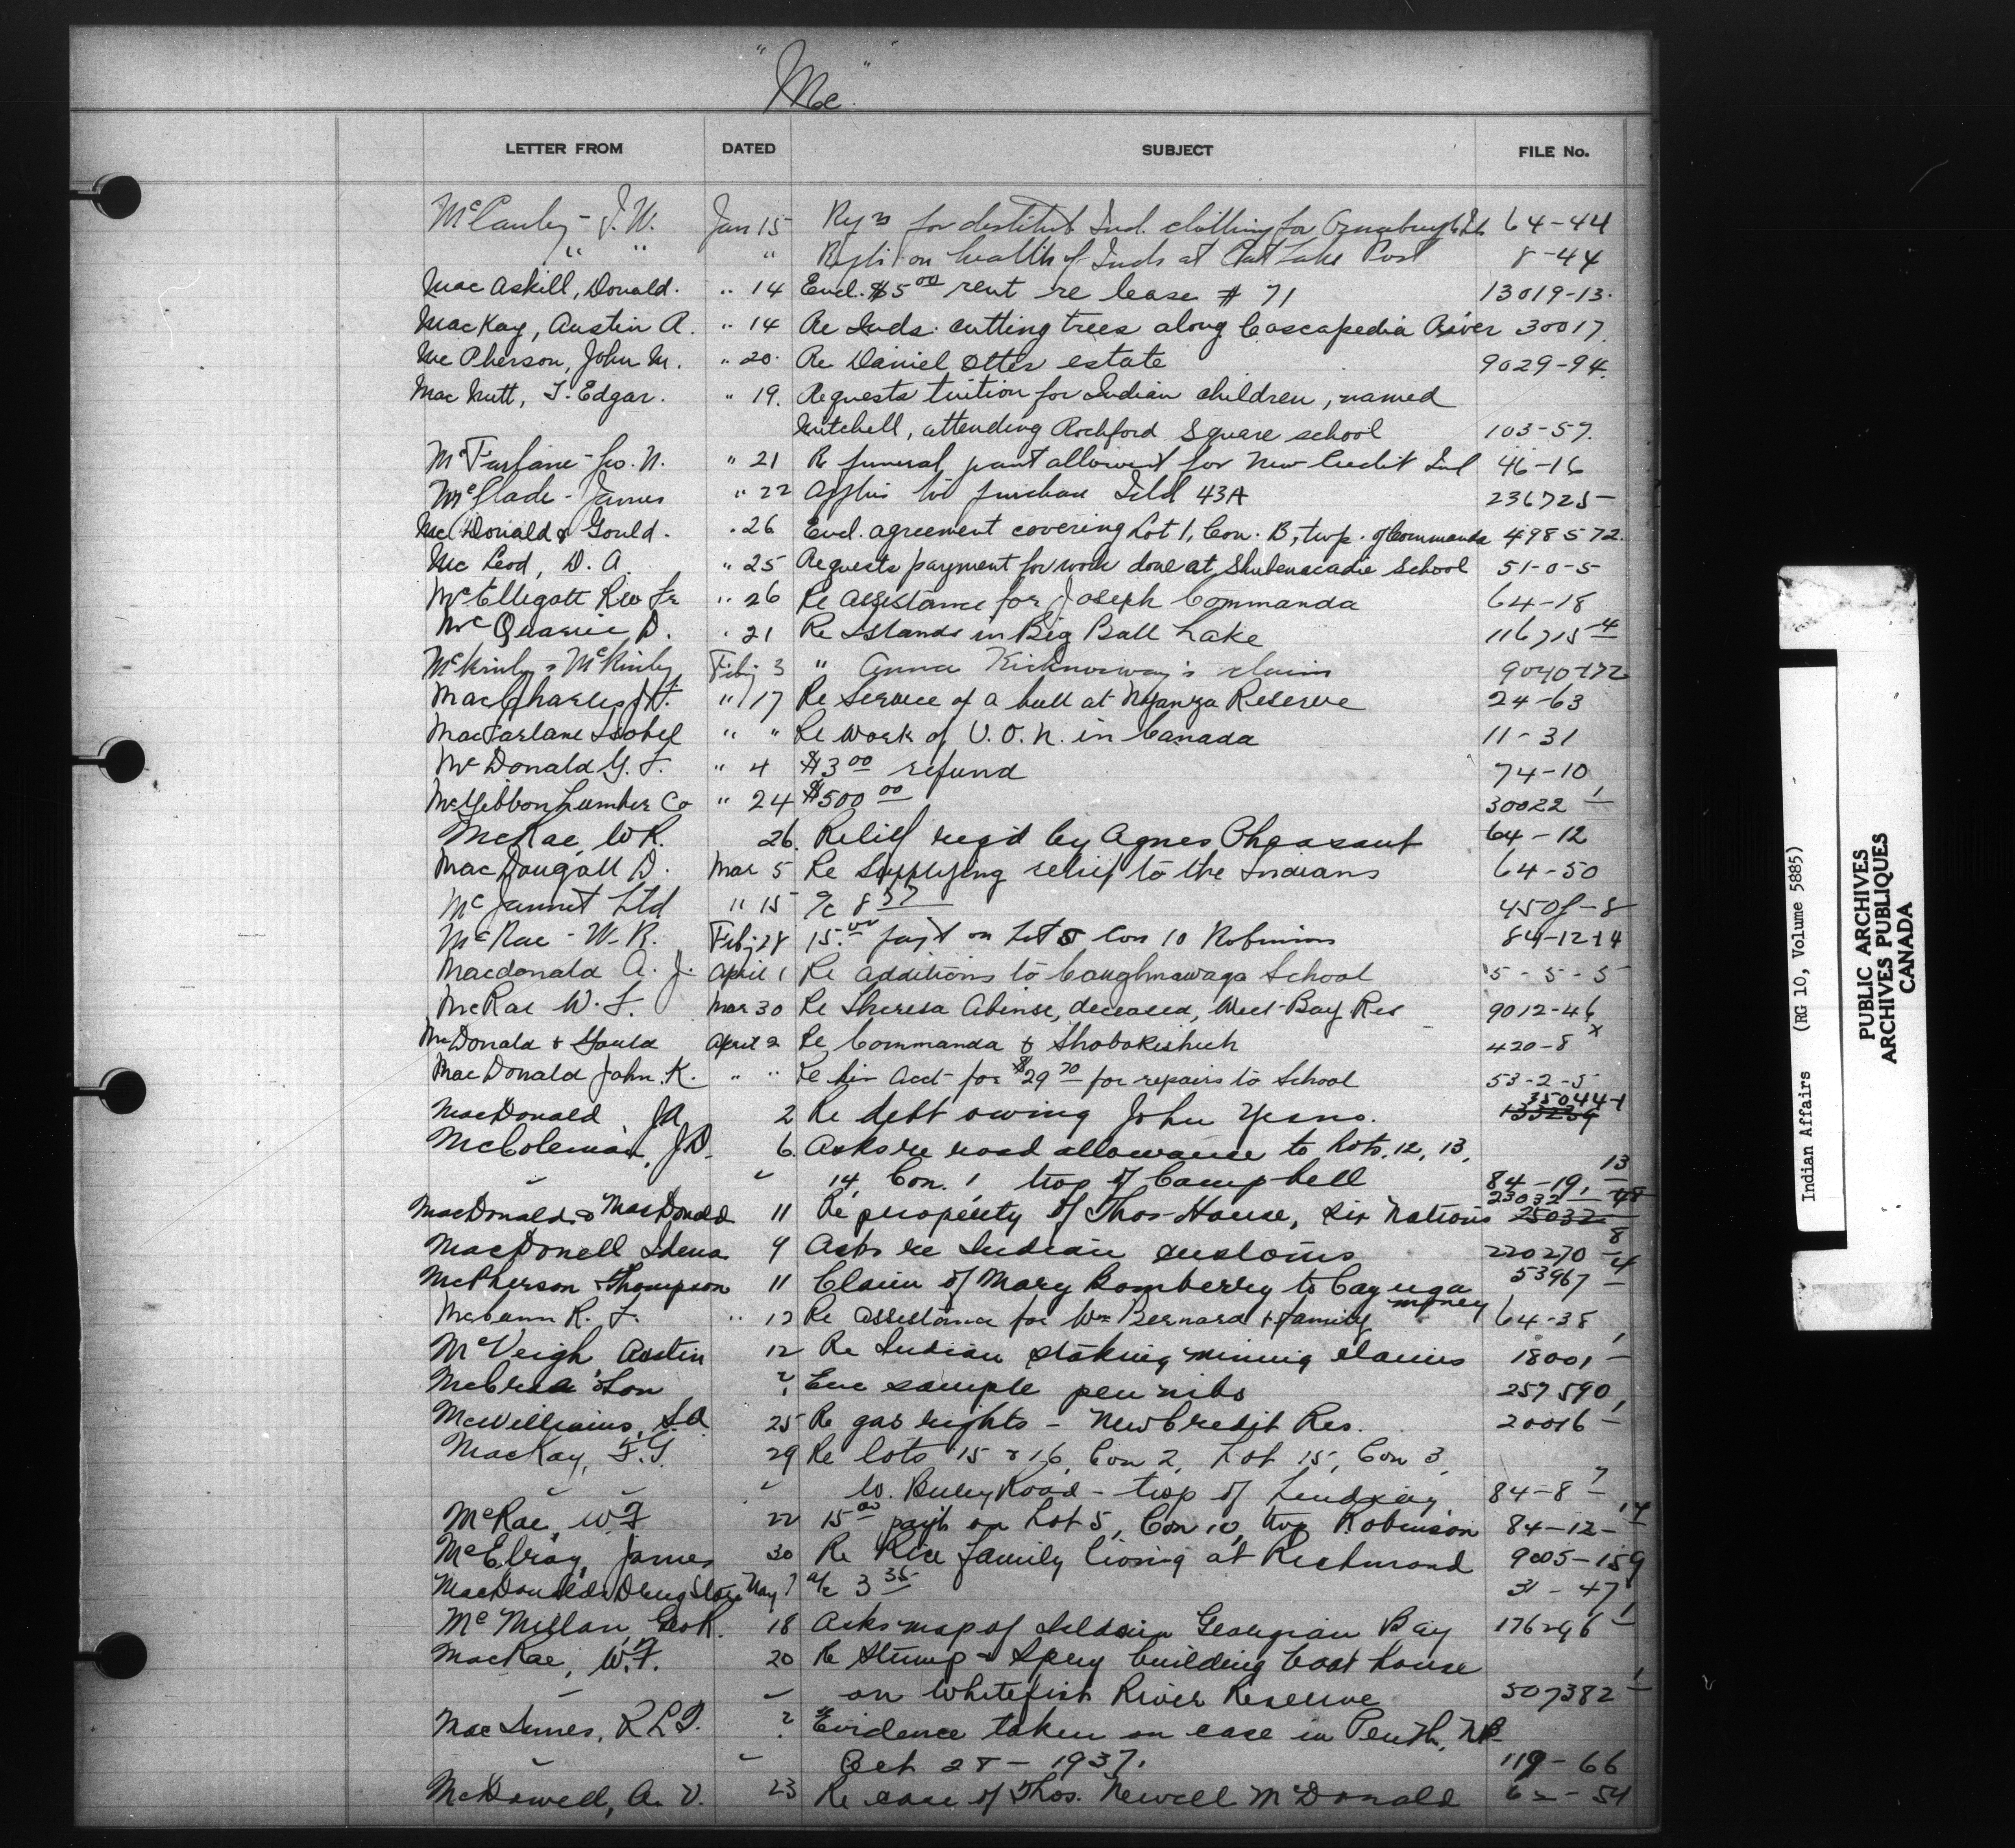 "Mc"
LETTER FROM DATED SUBJECT FILE No.
J. W. Jan 15 for destitute Ind. clothing for 64-44
" " " on health of Inds at Lake Post 8-44
MacAskill, Donald. " 14 Encl. $5 00 rent re lease # 71 13019-13.
MacKay, Austin A. " 14 Re Inds. cutting trees along Cascapedia River 30017.
McPherson, John M. " 20. Re Daniel Otter estate 9029-94.
MacNutt, T. Edgar. " 19. Requests tuition for Indian children, named
Mitchell, attending Rochford Square school 103-57.
McFarlane - N. " 21 Re funeral allowed for New Credit Ind 46-16
McGlade - James " 22 Applies to purchase Isld 43A 236725-
MacDonald & Gould. " 26 Encl. agreement covering Lot 1, Con. B, twp. of Commanda 498572.
McLeod, D. A. " 25 Requests payment for work done at Shubenacadie School 51-0-5
McElligott Rev Fr " 26 Re assistance for Joseph Commanda 64-18
McQuarrie, D. " 21 Re Islands in Big Ball Lake 116715-4
McKinley & McKinley Feby 3 " Anna claim 9040-172
MacCharles " 17 Re service of a bull at Nyanza Reserve 24-63
MacFarlane Isobel " " Re work of V. O. N. in Canada 11-31
McDonald G. F. " 4 $3 00 refund 74-10
McGibbon Lumber Co " 24 $500 00 30022-1
McRae, W R. 26. Relief reqd by Agnes Pheasant 64-12
MacDougall D. Mar 5 Re supplying relief to the Indians 64-50
McJannet Ltd " 15 a/c 8 37
McRae - W. R. Feby 28 15.00 payt on Lot 5 Con 10 Robinson 84-12-14
Macdonald A. J. April 1 Re additions to Caughnawaga School 5-5-5
McRae W. F. Mar 30 Re Theresa Abinse, deceased, West Bay Res 9012-46
McDonald & Gould April 2 Re Commanda & Shabokishick 420-8 x
MacDonald John K. " " Re his acct for $29 70 for repairs to School 53-2-5
MacDonald JA 2 Re debt owing John Yesno. 35044-1
McColeman, J.D. 6. Asks re road allowance to Lots, 12, 13,
" " 14, Con. 1, twp of Campbell 84-19, 13
MacDonald & MacDonald 11 Re property of Thos House, Six Nations 23032-48
MacDonell Idena 9 Asks re Indian customs 220270-8
McPherson & Thompson 11 Claim of Mary Bomberry to Cayuga money 53967-4
McCann R. F. " 12 Re assistance for Wm Bernard & family 64-38
McVeigh Austin 12 Re Indian staking mining claims 18001-1
McCrea & Son ? Enc sample pen nibs 257590,
McWilliams, 25 Re gas rights - New Credit Res. 20016-1
MacKay, F. G. 29 Re lots 15 & 16, Con 2, Lot 15, Con 3,
" " W. Road - twp of Lindsay 84-8-7
McRae, W F 22 15 00 payt on Lot 5, Con 10, twp Robinson 84-12-14
McElroy, James 30 Re Rice family living at Richmond 9005-159
MacDonalds Drug Store May ? a/c 3 35 31-47
McMillan, Geo R. 18 Asks map of Islds in Georgian Bay 176296-1
MacRae, W. F. 20 Re Stump & Spry building boat house
" " on Whitefish River Reserve 507382-1
MacInnes, ? Evidence taken on case in Perth, NB
" " Oct 28 - 1937. 119-66
McDowell, A. V. 23 Re case of Thos. Newell McDonald 62-54
Indian Affairs (RG 10, Volume 5885)
PUBLIC ARCHIVES
ARCHIVES PUBLIQUES
CANADA